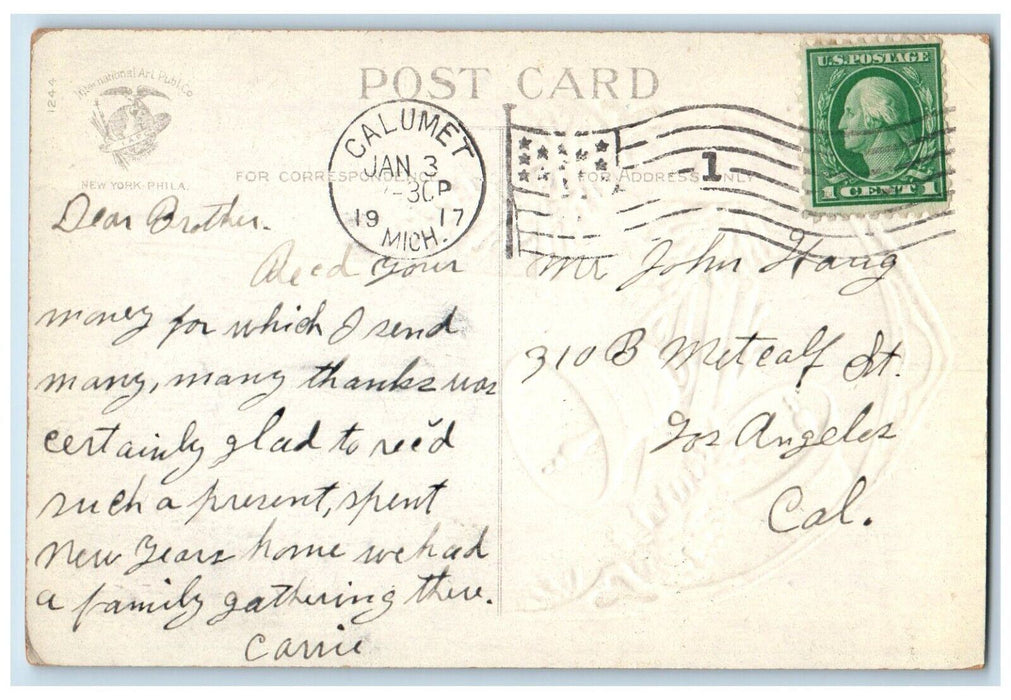 1244
International Art Publ. Co.
NEW YORK-PHILA.
POST CARD
FOR CORRESPONDENCE
FOR ADDRESS ONLY
CALUMET
JAN 3
-30P
19 17
MICH.
1
U.S. POSTAGE
1 CENT 1
Dear Brother.
Rec'd your
money for which I send
many, many thanks was
certainly glad to rec'd
such a present, spent
New Years home we had
a family gathering there.
Carrie
Mr John Haug
310 B Metcalf St.
Los Angeles
Cal.